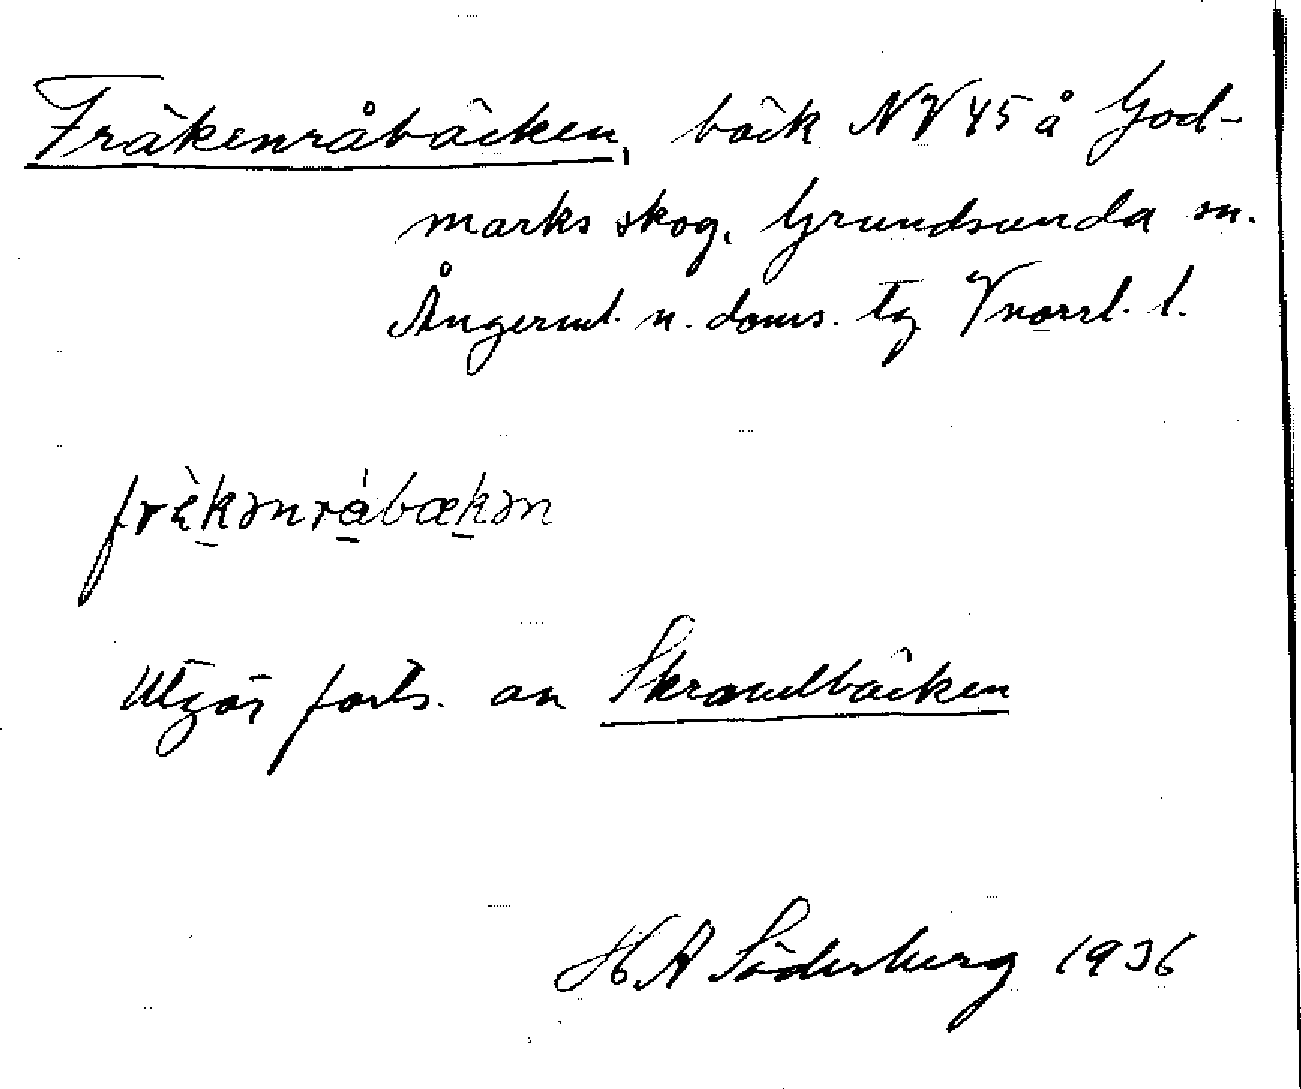 Fräkenråbäcken, bäck NV 45 å God-
marks skog. Grundsunda sn.
Ångerml. n. doms. tg Vnorrl. l.
frὲkənrábækən
Utgör forts. av Skravelbäcken
H A Söderberg 1936